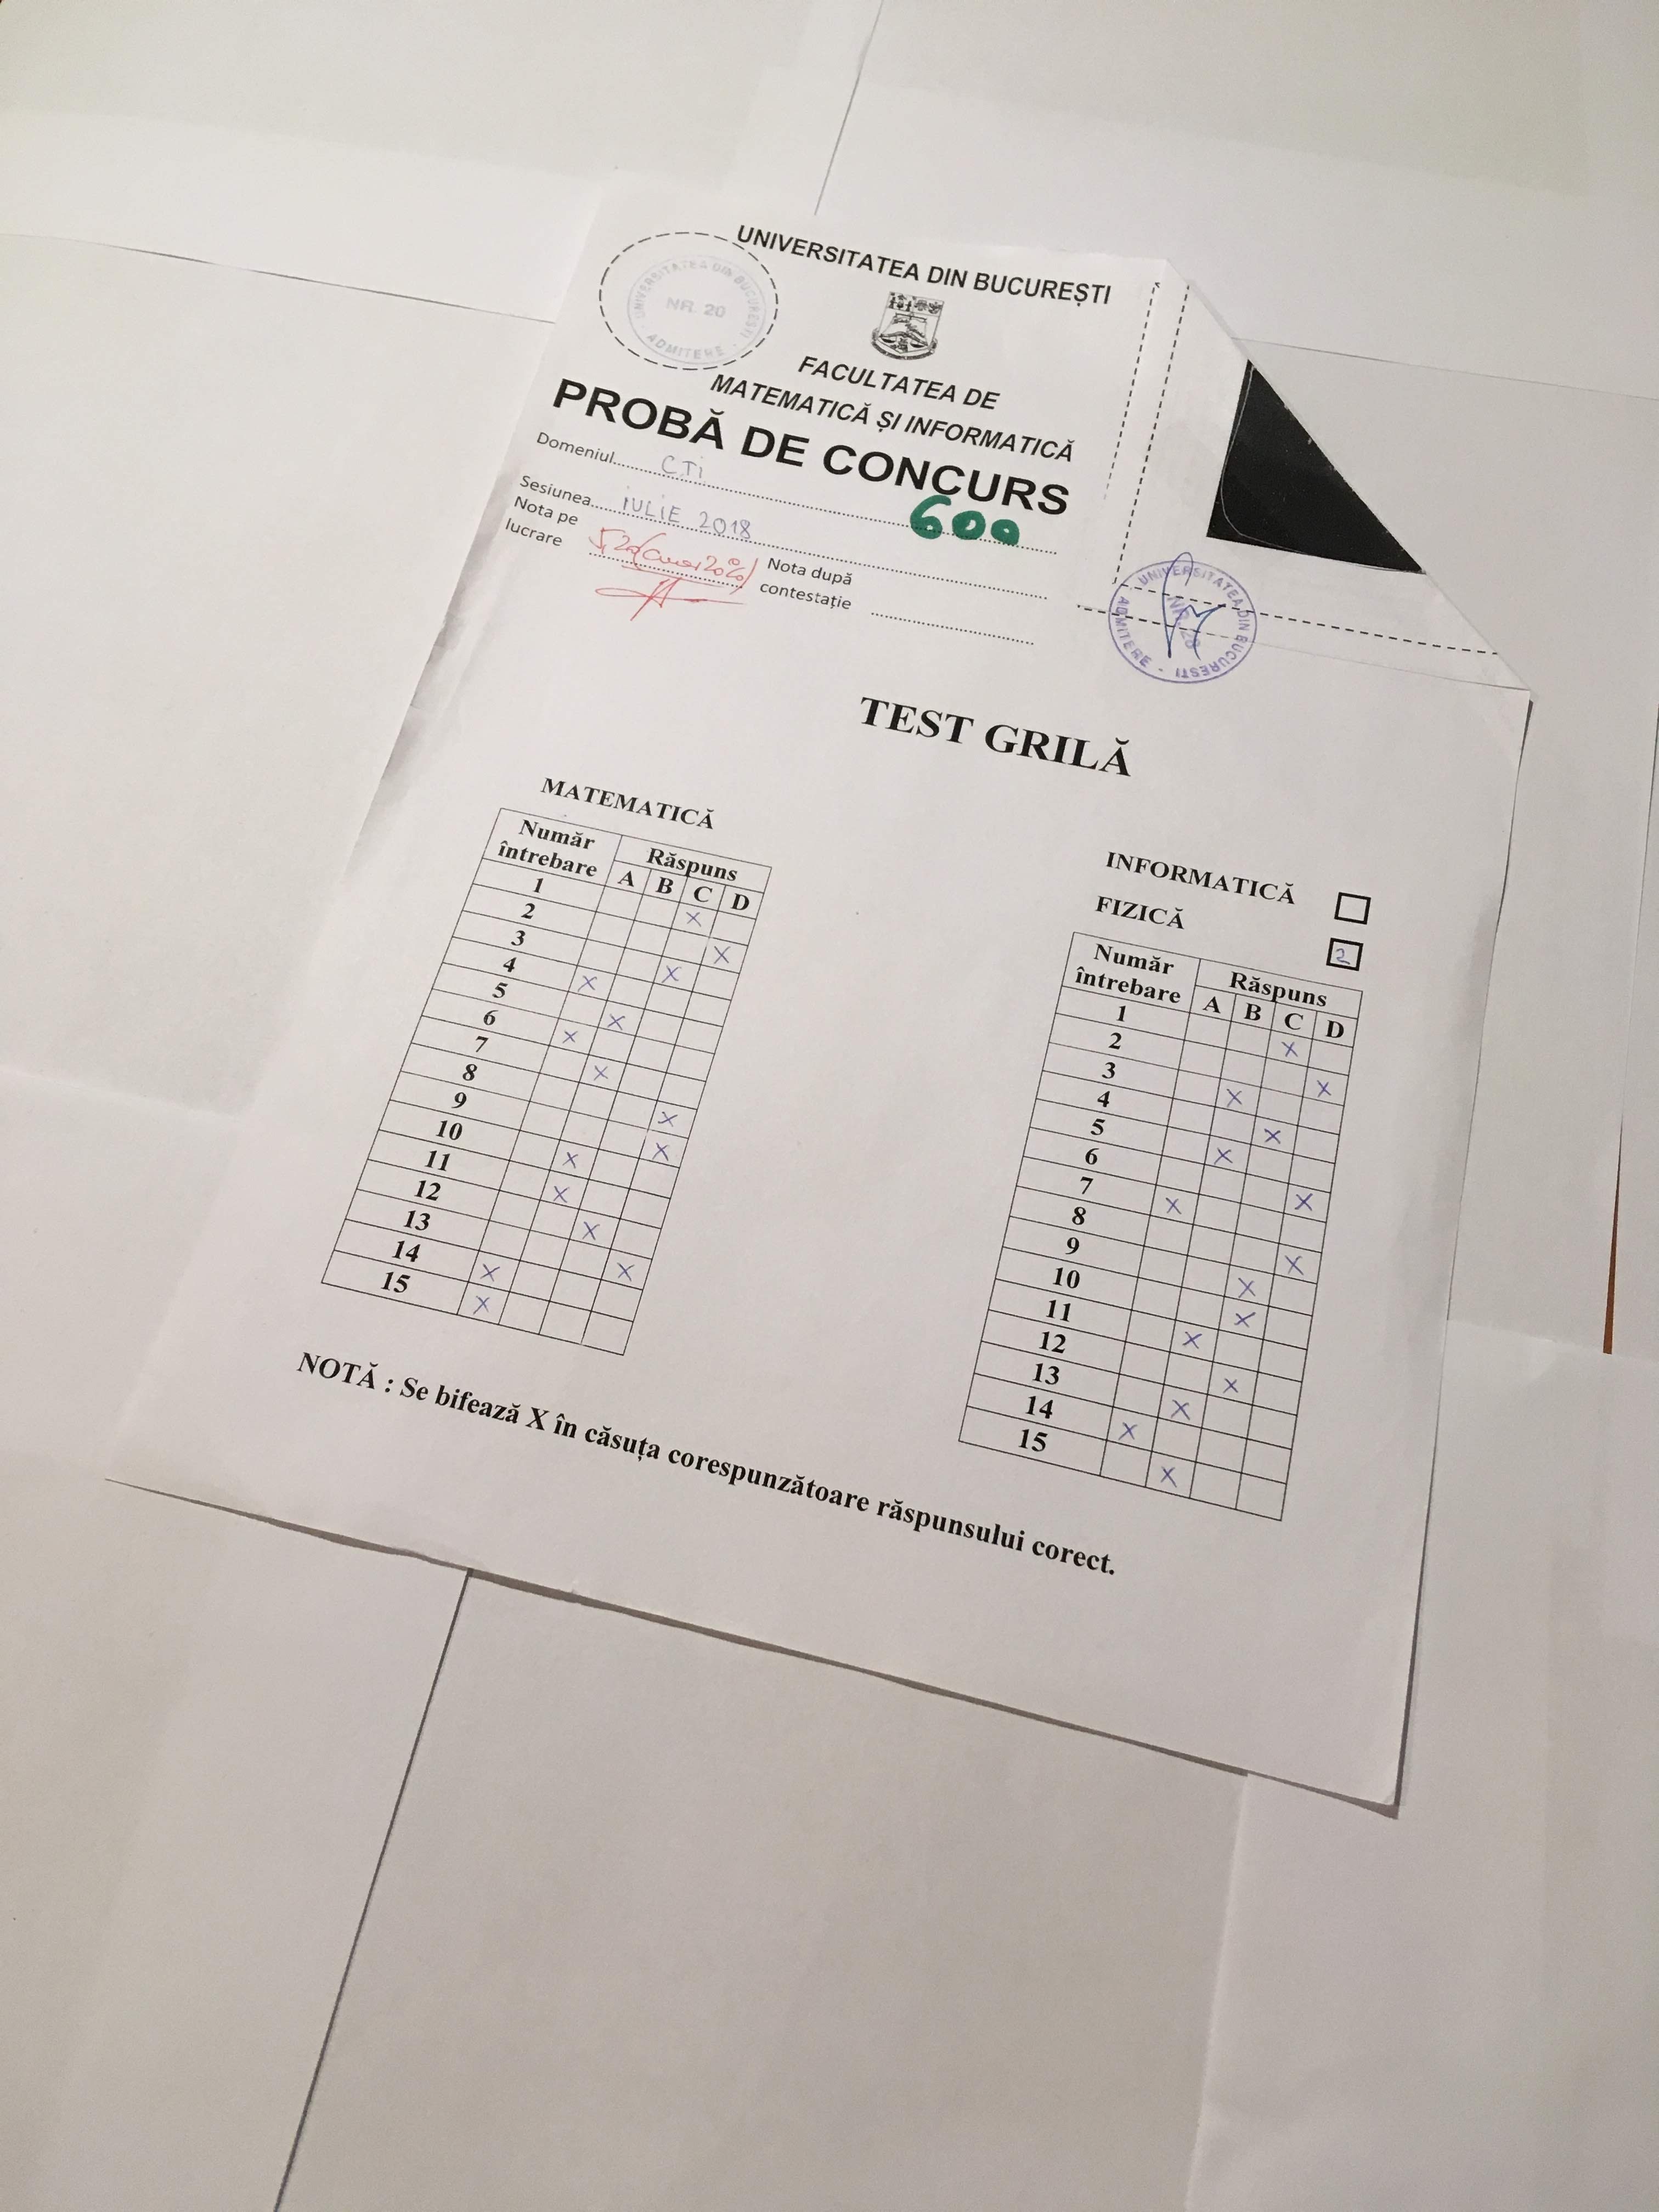 UNIVERSITATEA DIN BUCUREȘTI
UNIVERSITATEA DIN BUCUREȘTI
NR. 20
ADMITERE
FACULTATEA DE
MATEMATICĂ ȘI INFORMATICĂ
PROBĂ DE CONCURS
Domeniul CTI
600
Sesiunea IULIE 2018
Nota pe
lucrare 5,20
Nota după
contestație
UNIVERSITATEA DIN BUCUREȘTI
NR. 20
ADMITERE
TEST GRILĂ
MATEMATICĂ
Număr
întrebare
Răspuns
A B C D
1 X
2 X
3 X
4 X
5 X
6 X
7 X
8 X
9 X
10 X
11 X
12 X
13 X
14 X
15 X
INFORMATICĂ
FIZICĂ 2
Număr
întrebare
Răspuns
A B C D
1 X
2 X
3 X
4 X
5 X
6 X
7 X
8 X
9 X
10 X
11 X
12 X
13 X
14 X
15 X
NOTĂ : Se bifează X în căsuța corespunzătoare răspunsului corect.